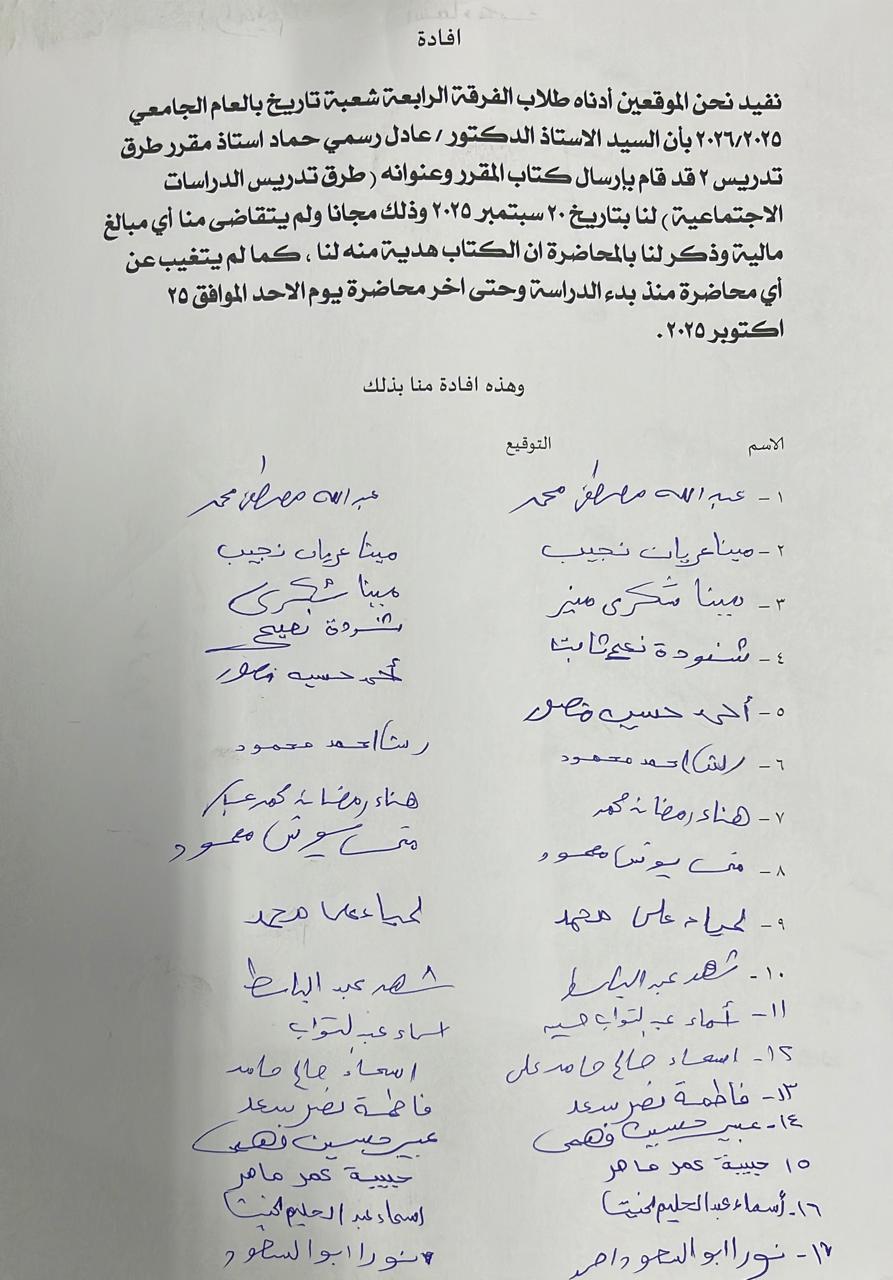 افادة
نفيد نحن الموقعين أدناه طلاب الفرقة الرابعة شعبة تاريخ بالعام الجامعي
٢٠٢٦/٢٠٢٥ بأن السيد الاستاذ الدكتور / عادل رسمي حماد استاذ مقرر طرق
تدريس ٢ قد قام بإرسال كتاب المقرر وعنوانه ( طرق تدريس الدراسات
الاجتماعية ) لنا بتاريخ ٢٠ سبتمبر ٢٠٢٥ وذلك مجانا ولم يتقاضى منا أي مبالغ
مالية وذكر لنا بالمحاضرة ان الكتاب هدية منه لنا ، كما لم يتغيب عن
أي محاضرة منذ بدء الدراسة وحتى اخر محاضرة يوم الاحد الموافق ٢٥
اكتوبر ٢٠٢٥ .
وهذه افادة منا بذلك
الاسم التوقيع
١- عبد الله مصطفى محمد عبد الله مصطفى محمد
٢- مينا عريان نجيب مينا عريان نجيب
٣- مينا شكرى منير مينا شكرى
٤- شنودة ثابت شنودة
٥- أحمد حسين منصور أحمد حسين منصور
٦- رشا احمد محمود رشا احمد محمود
٧- هناء رمضان محمد هناء رمضان محمد
٨- منى محمود منى محمود
٩- لمياء على محمد لمياء على محمد
١٠- شهد عبد الباسط شهد عبد الباسط
١١- أسماء عبد التواب حسين اسماء عبد التواب
١٢- اسماء صالح حامد على اسماء صالح حامد
١٣- فاطمة نصر سعد فاطمة نصر سعد
١٤- عبير حسين فهمى عبير حسين فهمى
١٥ حبيبة عمر ماهر حبيبة عمر ماهر
١٦- أسماء عبد الحليم اسماء عبد الحليم
١٧- نورا ابو السعود احمد نورا ابو السعود